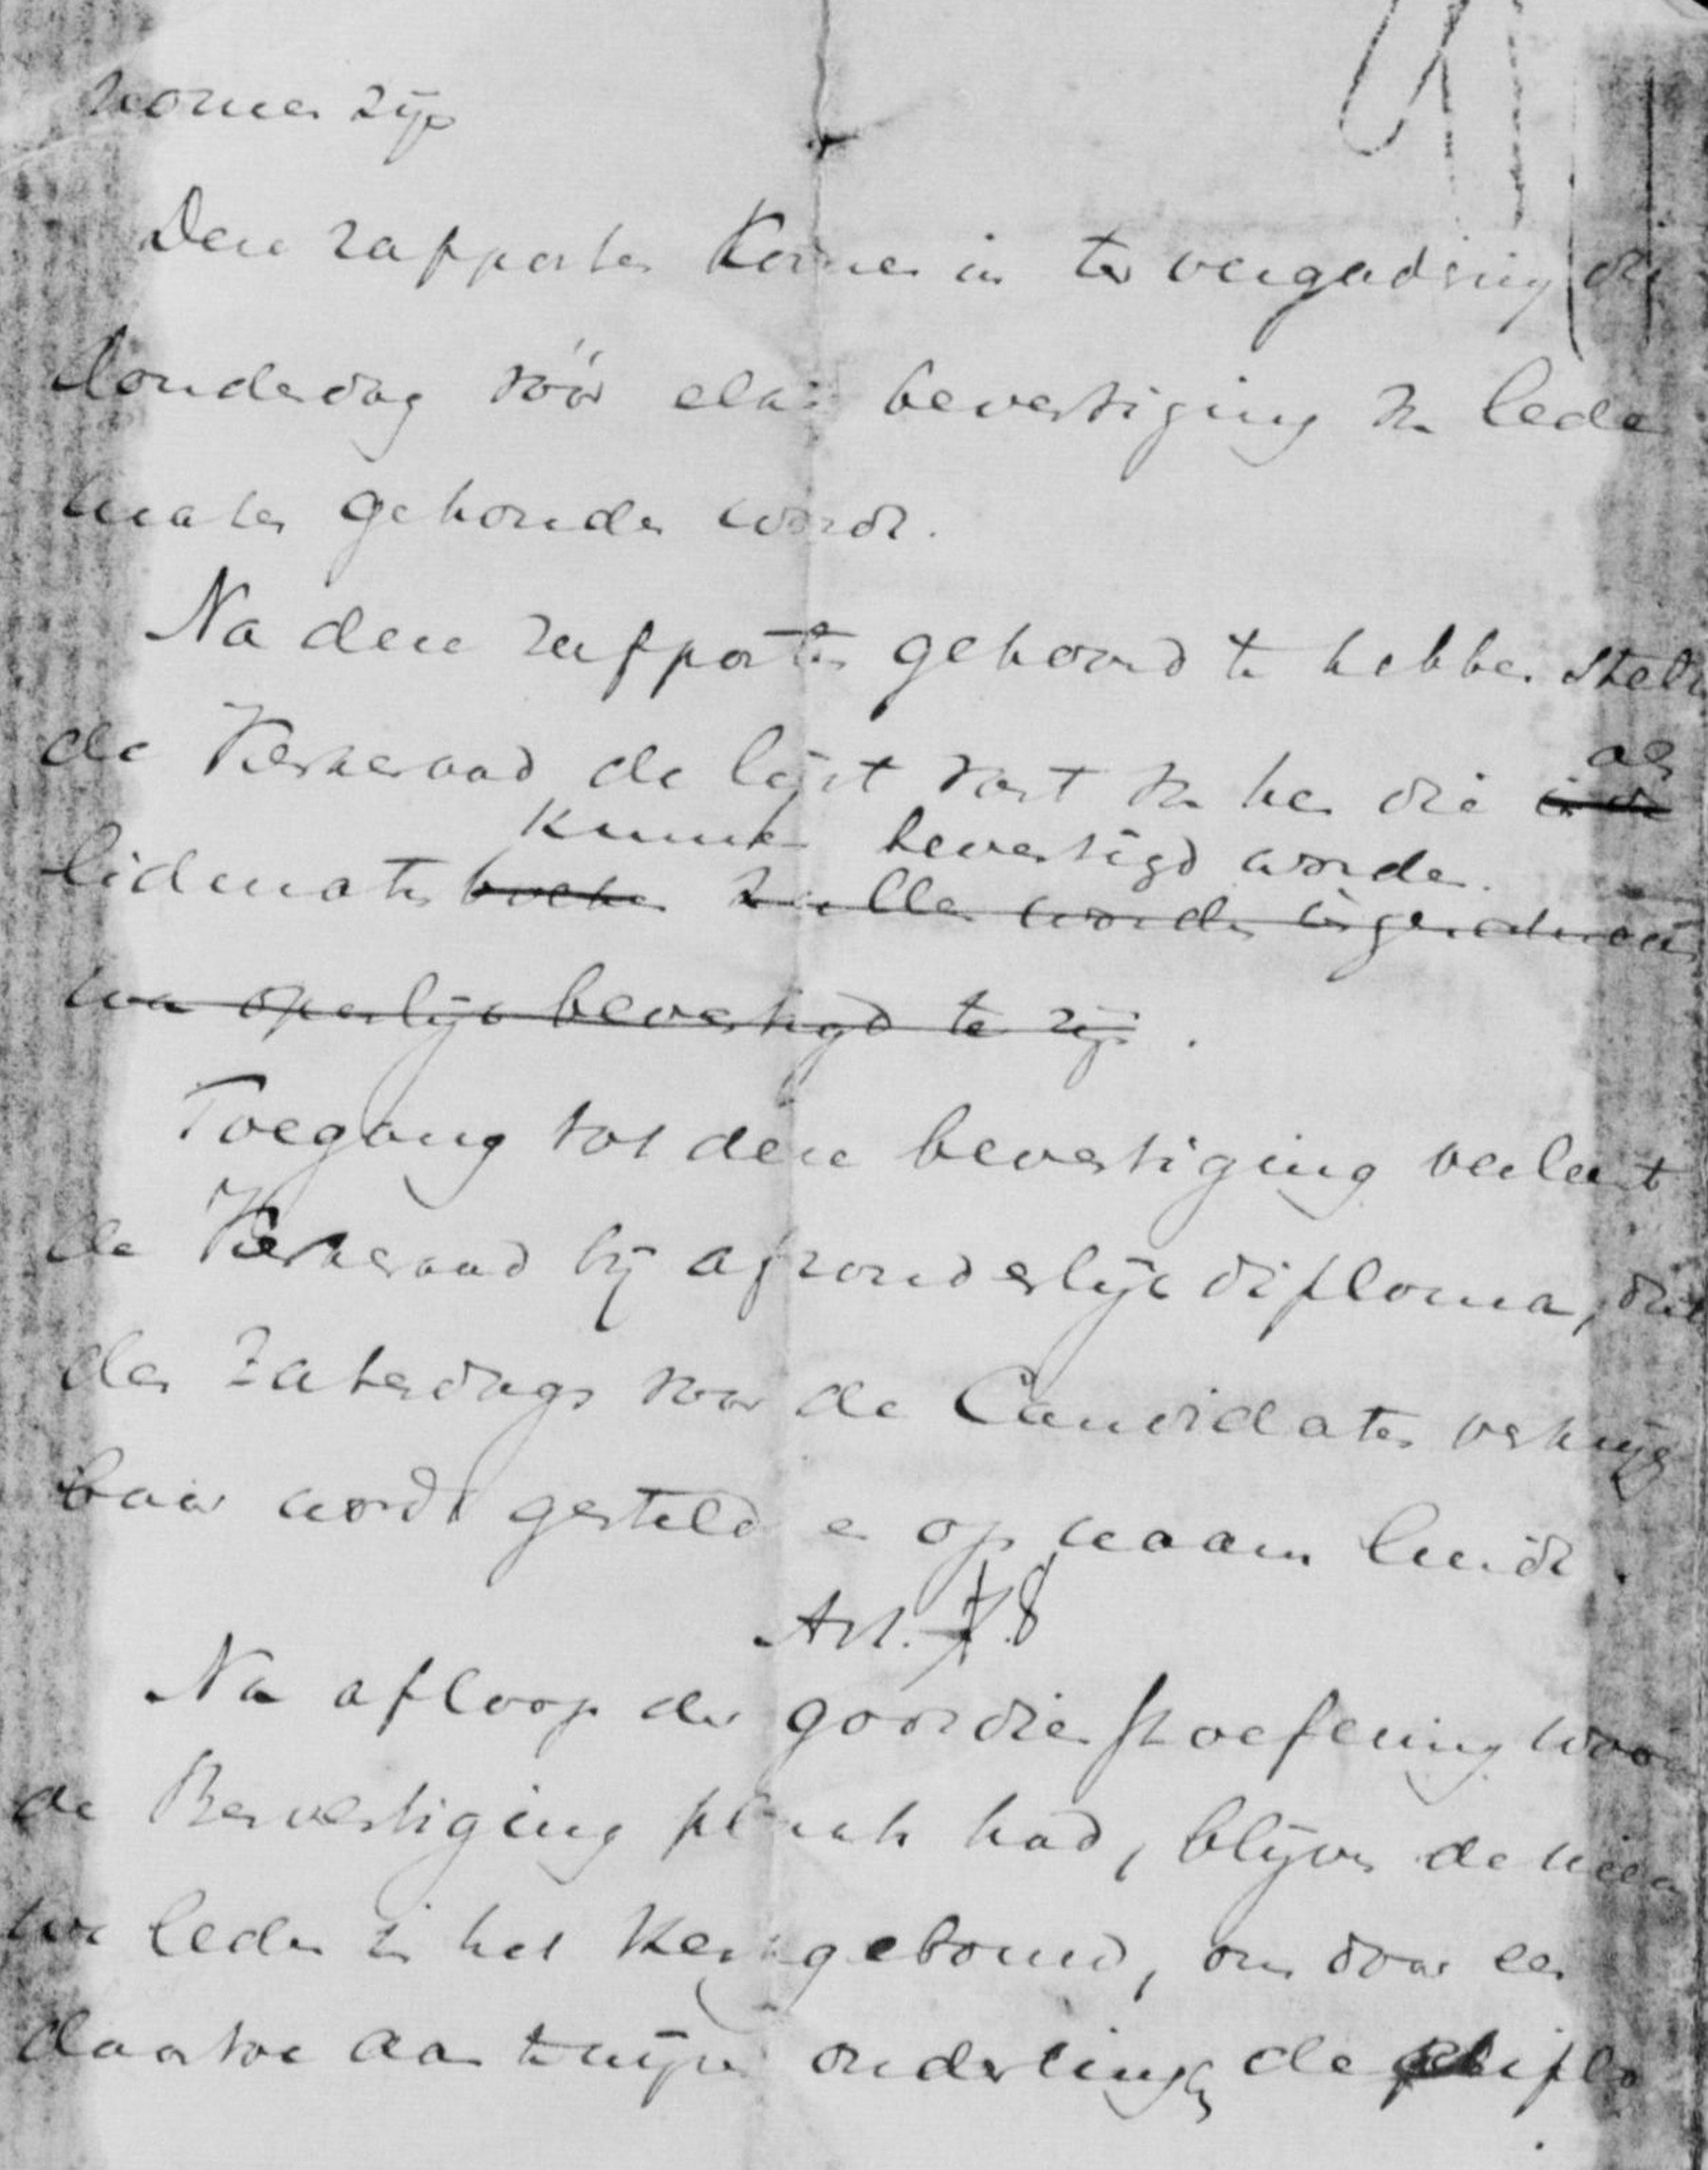 komen zijn
Deze rapporten komen in ter vergadering die
donderdag vóór elke bevestiging van lede
maten gehouden wordt.
Na deze rapporten gehoord te hebben stelt
de Kerkeraad de lijst vast van hen die als
kunnen bevestigd worden.
lidmaten boeken zullen worden ingeschreven
na openlijk bevestigd te zijn.
Toegang tot deze bevestiging verleent
de Kerkeraad bij afzonderlijk diploma, dat
des Zaterdags voor de Candidaten verkrijg
baar wordt gesteld en op naam luidt.
Art. 7.8
Na afloop der godsdienstoefening waar
de Bevestiging plaats had, blijven de nieu
we leden in het kerkgebouw, om door een
daartoe aan te wijzen ouderling de diplo